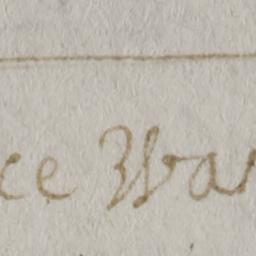 ce War